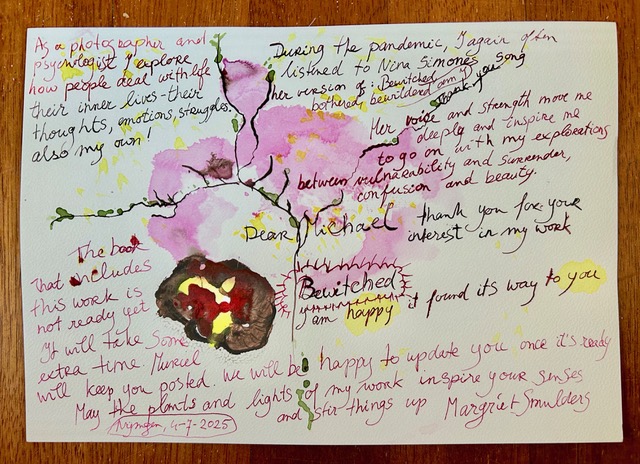 As a photographer and
psychologist I explore
how people deal with life
their inner lives - their
thoughts, emotions, struggles.
also my own!
During the pandemic, I again often
listened to Nina Simones song
her version of: Bewitched
bothered, bewildered am I
thank you
Her voice and strength move me
deeply and inspire me
to go on with my explorations
between vulnarability and surrender,
confusion and beauty.
Dear Michael thank you for your
interest in my work
Bewitched
I am happy it found its way to you
The book
That includes
this work is
not ready yet
It will take some
extra time Muriel
will keep you posted. we will be happy to update you once it's ready
May the plants and lights of my work inspire your senses
and stir things up Margriet Smulders
Nijmegen, 4-7-2025